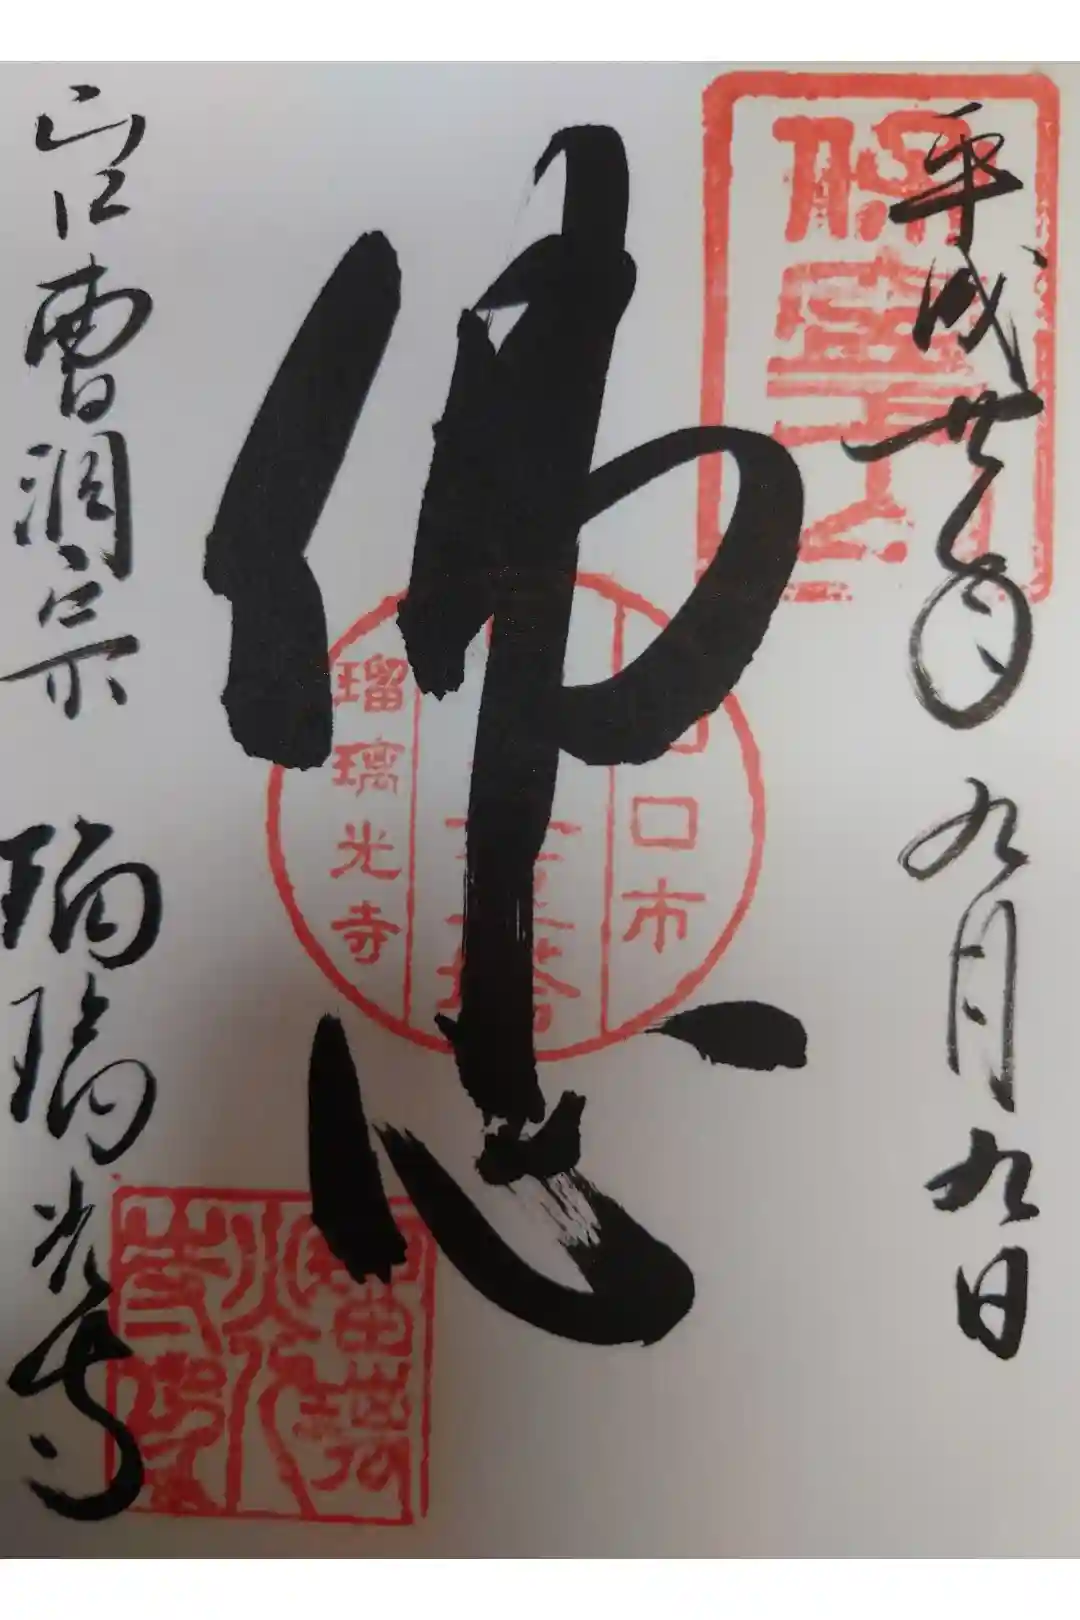 平成廿年九月九日
佛心
山口曹洞宗 瑠璃光寺
山口市
五重塔
瑠璃光寺